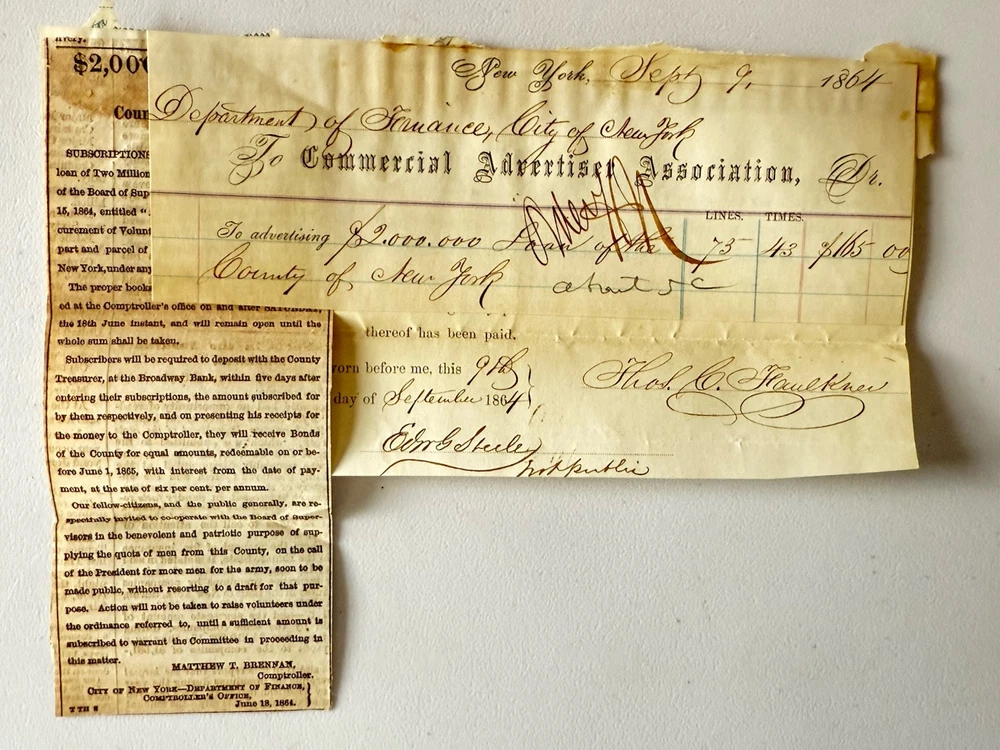 New York, Sept 9, 1864
Department of Finance, City of New York
To Commercial Advertiser Association, Dr.
LINES. TIMES.
To advertising $2.000.000 Loan of the 75 43 $165 00
County of New York
thereof has been paid.
orn before me, this 9th
day of September 1864
Thos. C. Faulkner
Edw G Steele
Not Public
livery.
$2,00
Coun
SUBSCRIPTIONS
loan of Two Million
of the Board of Sup
15, 1864, entitled “
curement of Volunt
part and parcel of
New York, under any
The proper books
ed at the Comptroller's office on and after SATURDAY,
the 18th June instant, and will remain open until the
whole sum shall be taken.
Subscribers will be required to deposit with the County
Treasurer, at the Broadway Bank, within five days after
entering their subscriptions, the amount subscribed for
by them respectively, and on presenting his receipts for
the money to the Comptroller, they will receive Bonds
of the County for equal amounts, redeemable on or be-
fore June 1, 1865, with interest from the date of pay-
ment, at the rate of six per cent. per annum.
Our fellow-citizens, and the public generally, are re-
spectfully invited to co-operate with the Board of Super-
visors in the benevolent and patriotic purpose of sup-
plying the quota of men from this County, on the call
of the President for more men for the army, soon to be
made public, without resorting to a draft for that pur-
pose. Action will not be taken to raise volunteers under
the ordinance referred to, until a sufficient amount is
subscribed to warrant the Committee in proceeding in
this matter.
MATTHEW T. BRENNAN,
Comptroller.
CITY OF NEW YORK—DEPARTMENT OF FINANCE,
COMPTROLLER'S OFFICE,
June 13, 1864.